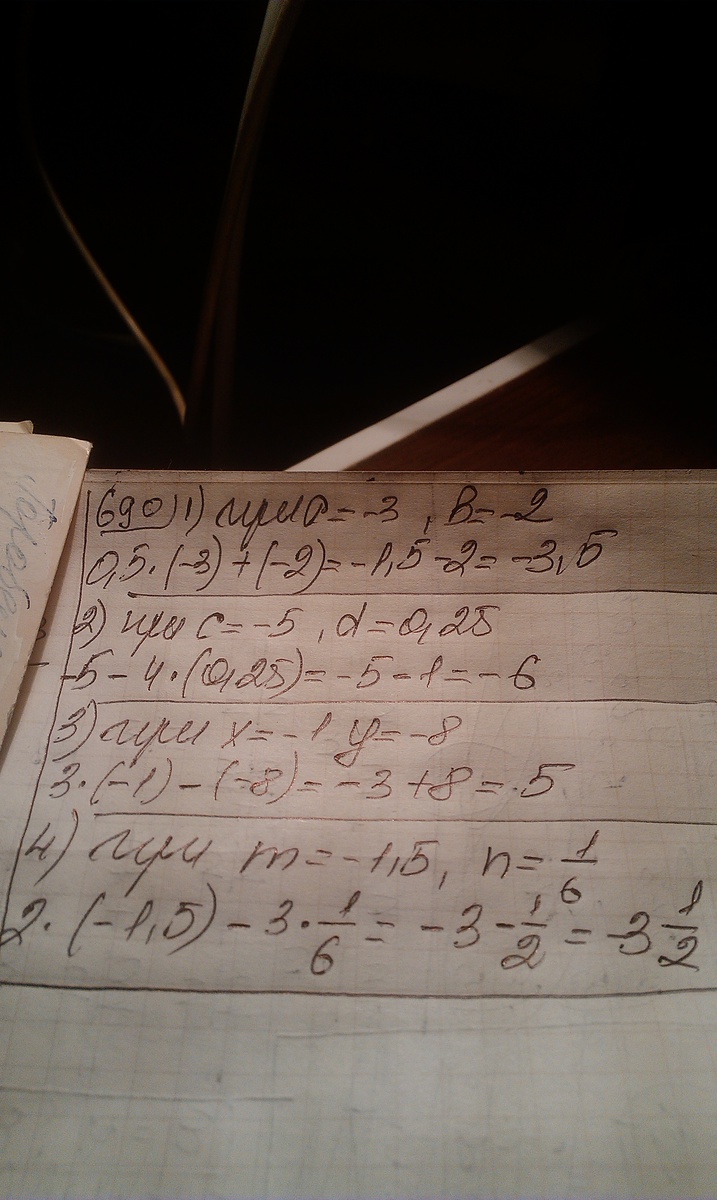 690) 1) при a = -3, b = -2
0,5·(-3)+(-2)=-1,5-2=-3,5
2) при c = -5, d = 0,25
-5 - 4·(0,25) = -5 - 1 = -6
3) при x = -1 y = -8
3·(-1) - (-8) = -3 + 8 = 5
4) при m = -1,5, n = 1/6
2·(-1,5) - 3·1/6 = -3 - 1/2 = -3 1/2